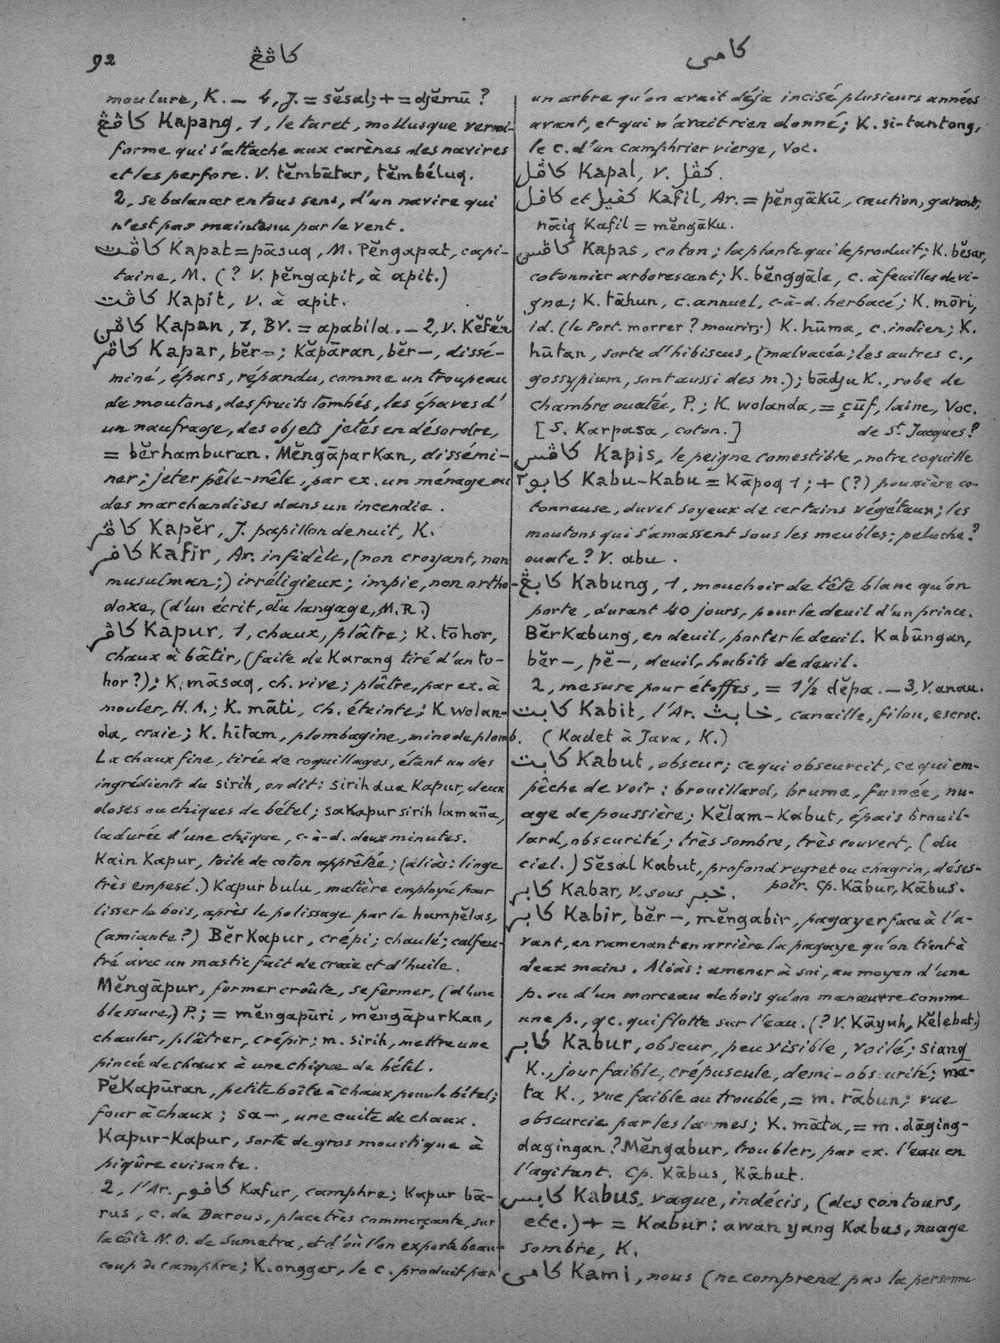 92 كاڤڠ
كامى
moulure, K. — 4, J. = sĕsal; + = djĕmū ?
كاڤڠ Kapang, 1, le taret, mollusque vermi-
forme qui s'attache aux carènes des navires
et les perfore. V. tĕmbātar, tĕmbéluq.
2, se balancer en tous sens, d'un navire qui
n'est pas maintenu par le vent.
كاڤت Kapat = pāsuq, M. Pĕngapat, capi-
taine, M. (? V. pĕngapit, à apit.)
كاڤت Kapit, V. à apit.
كاڤن Kapan, 1, BV. = apabila. — 2, V. Kĕfĕn
كاڤر Kapar, bĕr—; Kăpāran, bĕr—, dissé-
miné, épars, répandu, comme un troupeau
de moutons, des fruits tombés, les épaves d'
un naufrage, des objets jetés en désordre,
= bĕrhamburan. Mĕngāparkan, dissémi-
ner; jeter pêle-mêle, par ex. un ménage ou
des marchandises dans un incendie.
كاڤر Kapĕr, J. papillon de nuit, K.
كافر Kafir, Ar. infidèle, (non croyant, non
musulman;) irréligieux; impie, non ortho-
doxe, (d'un écrit, du langage, M.R.)
كاڤر Kapur, 1, chaux, plâtre; K. tōhor,
chaux à bâtir, (faite de Karang tiré d'an to-
hor?); K. māsaq, ch. vive; plâtre, par ex. à
mouler, H.A.; K. māti, ch. éteinte; K wolan-
da, craie; K. hitam, plombagine, mine de plomb.
La chaux fine, tirée de coquillages, étant un des
ingrédients du sirih, on dit: sirih dua Kapur, deux
doses ou chiques de bétel; saKapur sirih lamaña,
la durée d'une chique, c-à-d. deux minutes.
Kain Kapur, toile de coton apprêtée; (aliàs: linge
très empesé.) Kapur bulu, matière employée pour
lisser le bois, après le polissage par la hampĕlas,
(amiante?) BĕrKapur, crépi; chaulé; calfeu-
tré avec un mastic fait de craie et d'huile.
Mĕngāpur, former croûte, se fermer, (d'une
blessure,) P.; = mĕngapūri, mĕngāpurKan,
chauler, plâtrer, crépir; m. sirih, mettre une
pincée de chaux à une chique de bétel.
PĕKapūran, petite boîte à chaux pour le bétel;
four à chaux; sa—, une cuite de chaux.
Kapur-Kapur, sorte de gros moustique à
piqûre cuisante.
2, l'Ar. كافور Kafur, camphre; Kapur bā-
rus, c. de Barous, place très commerçante, sur
la côte N.O. de Sumatra, et d'où l'on exporte beau-
coup de camphre; K. ongger, le c. produit par
un arbre qu'on avait déjà incisé plusieurs années
avant, et qui n'avait rien donné; K. si-tantong,
le c. d'un camphrier vierge, Voc.
كاڤل Kapal, V. كڤل.
كافل et كفيل Kafil, Ar. = pĕngākū, caution, garant;
nāiq Kafil = mĕngāku.
كاڤس Kapas, coton; la plante qui le produit; K. bĕsar,
cotonnier arborescant; K. bĕnggāla, c. à feuilles de vi-
gne; K. tāhun, c. annuel, c-à-d. herbacé; K. mōri,
id. (le Port. morrer ? mourir;) K. hūma, c. indien; K.
hūtan, sorte d'hibiscus, (malvacée; les autres c.,
gossypium, sont aussi des m.); bādju K., robe de
chambre ouatée, P.; K. wolanda, = çūf, laine, Voc.
[S. Karpasa, coton.]
de St Jacques?
كاڤس Kapis, le peigne comestible, notre coquille
كابو٢ Kabu-Kabu = Kāpoq 1; + (?) poussière co-
tonneuse, duvet soyeux de certains végétaux; les
moutons qui s'amassent sous les meubles; peluche?
ouate? V. abu.
كابڠ Kabung, 1, mouchoir de tête blanc qu'on
porte, durant 40 jours, pour le deuil d'un prince.
BĕrKabung, en deuil, porter le deuil. Kabūngan,
bĕr—, pĕ—, deuil, habits de deuil.
2, mesure pour étoffes, = 1½ dĕpa. — 3, V. anau.
كابت Kabit, l'Ar. خابث, canaille, filou, escroc.
(Kadet à Java, K.)
كابت Kabut, obscur; ce qui obscurcit, ce qui em-
pêche de voir: brouillard, brume, fumée, nu-
age de poussière; Kĕlam-Kabut, épais brouil-
lard, obscurité; très sombre, très couvert, (du
ciel.) Sĕsal Kabut, profond regret ou chagrin, déses-
poir. Cp. Kābur, Kābus.
كابر Kabar, V. sous خبر.
كابر Kabir, bĕr—, mĕngabir, pagayer face à l'a-
vant, en ramenant en arrière la pagaye qu'on tient à
deux mains. Aliàs: amener à soi, au moyen d'une
p. ou d'un morceau de bois qu'on manœuvre comme
une p., qc. qui flotte sur l'eau. (? V. Kāyuh, Kĕlebat.)
كابر Kabur, obscur, peu visible, voilé; siang
K., jour faible, crépuscule, demi-obscurité; ma-
ta K., vue faible ou trouble, = m. rābun; vue
obscurcie par les larmes; K. māta, = m. dāging-
dagingan? Mĕngabur, troubler, par ex. l'eau en
l'agitant. Cp. Kābus, Kābut.
كابس Kabus, vague, indécis, (des contours,
etc.) + = Kabur: awan yang Kabus, nuage
sombre, K.
كامى Kami, nous (ne comprend pas la personne